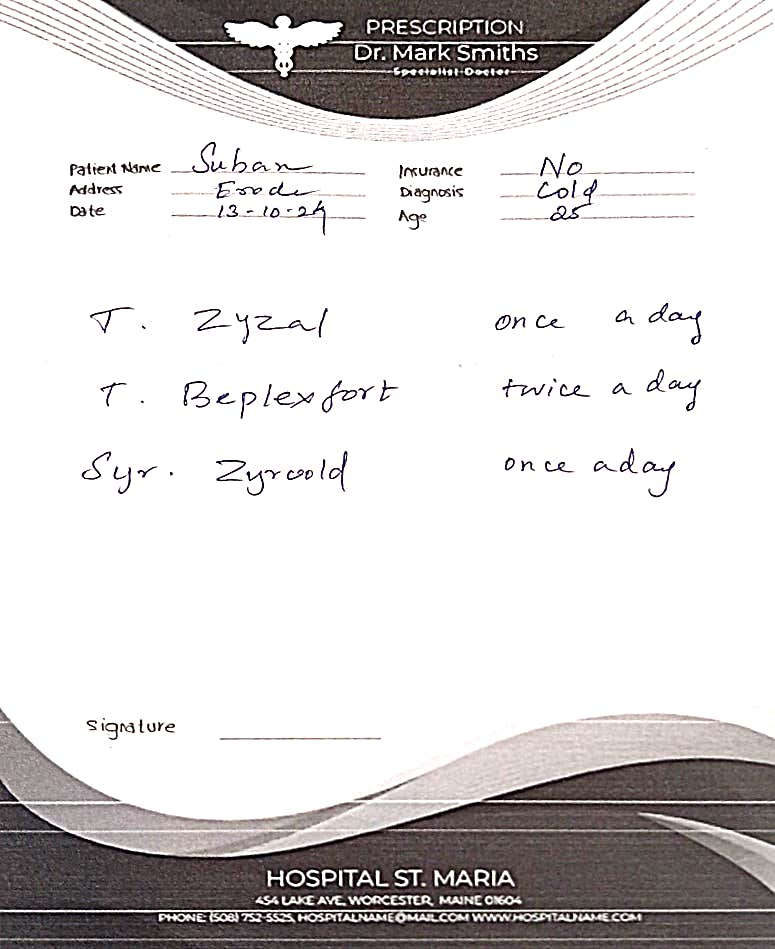 PRESCRIPTION
Dr. Mark Smiths
Specialist Doctor
Patient Name Suban Insurance No
Address Erode Diagnosis Cold
Date 13-10-24 Age 25
T. Zyzal once a day
T. Beplexfort twice a day
Syr. Zyrcold once aday
Signature
HOSPITAL ST. MARIA
454 LAKE AVE, WORCESTER, MAINE 01604
PHONE: (508) 752-5525, HOSPITALNAME@MAIL.COM WWW.HOSPITALNAME.COM